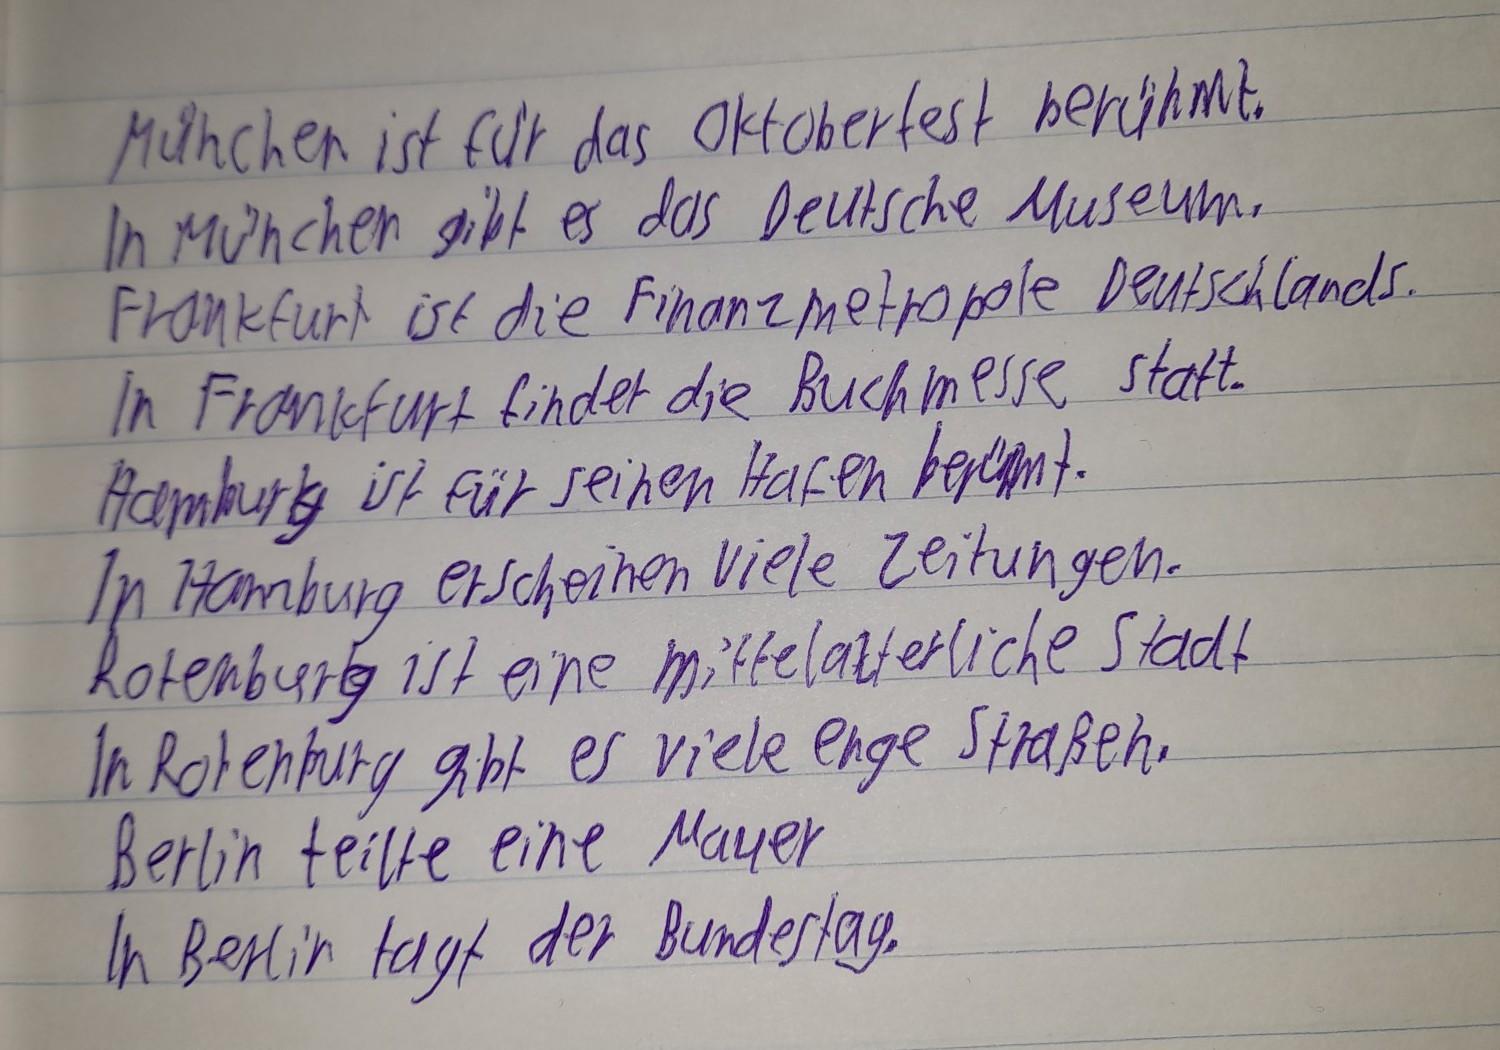 München ist für das Oktoberfest berühmt.
In München gibt es das Deutsche Museum.
Frankfurt ist die Finanzmetropole Deutschlands.
In Frankfurt findet die Buchmesse statt.
Hamburg ist für seinen Hafen berümt.
In Hamburg erscheinen viele Zeitungen.
Rotenburg ist eine mittelalterliche Stadt
In Rotenburg gibt es viele enge Straßen.
Berlin teilte eine Mauer
In Berlin tagt der Bundestag.